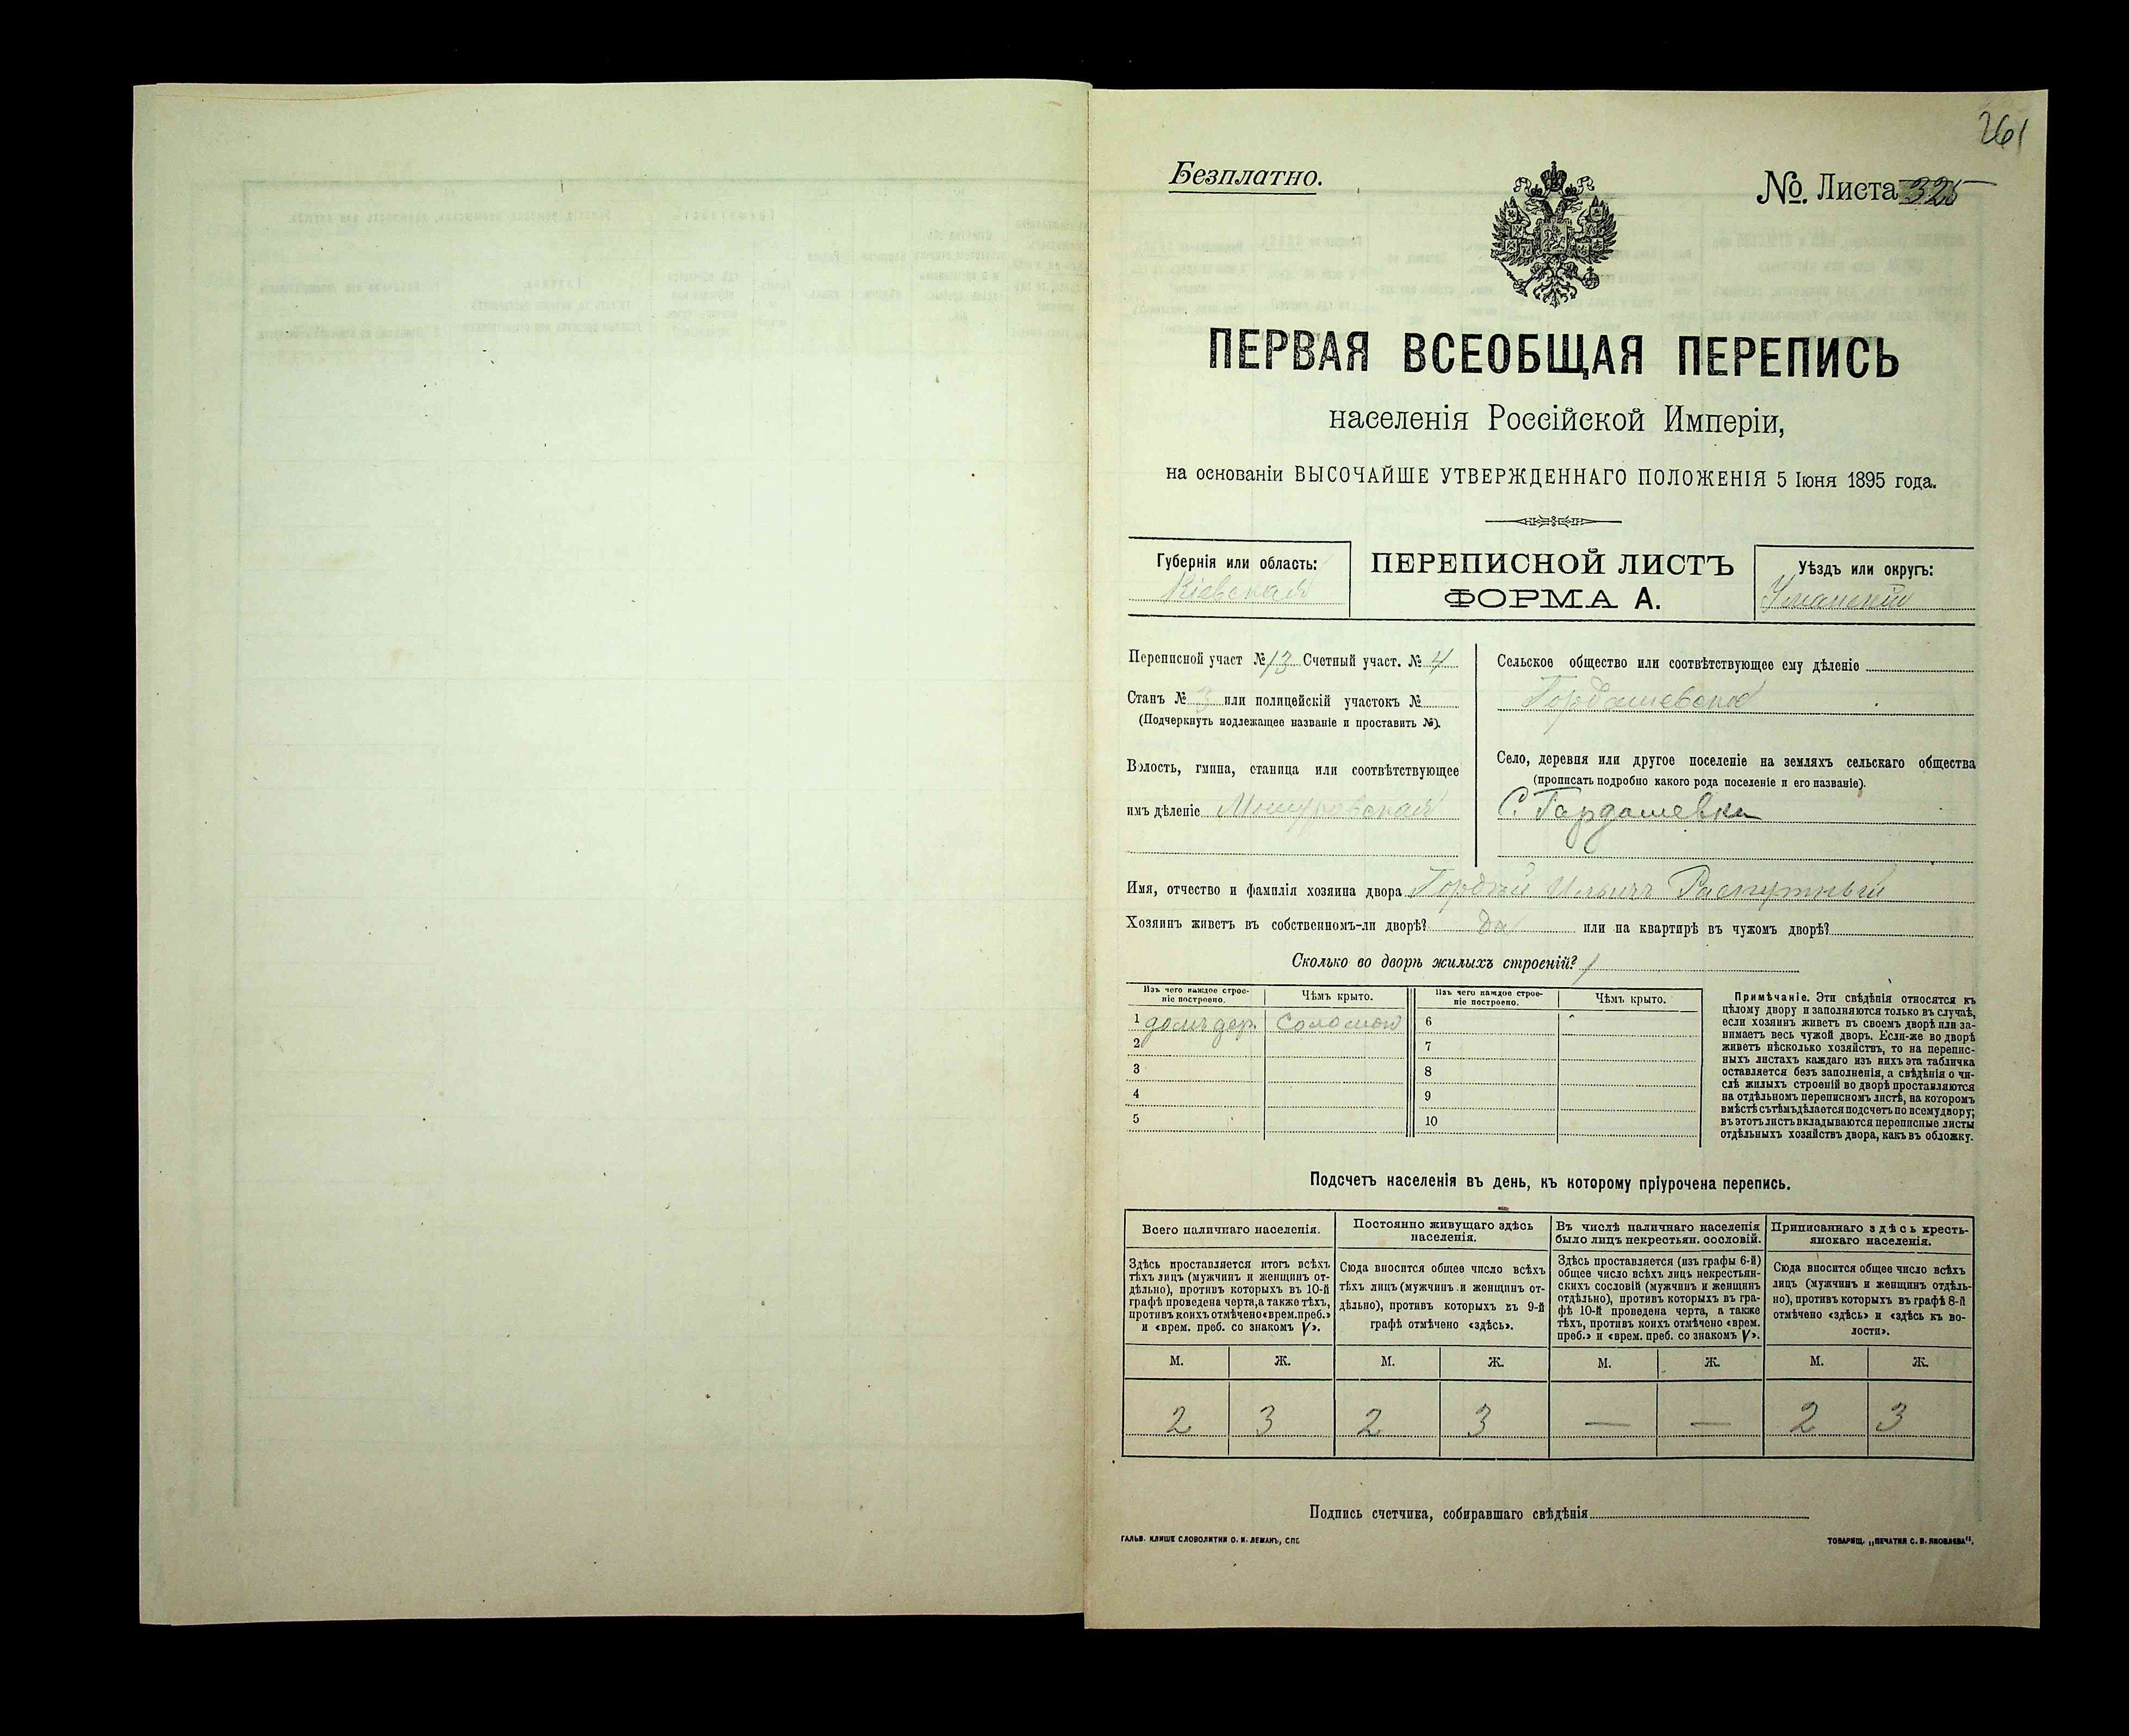 261
Безплатно.
№. Листа 325
ПЕРВАЯ ВСЕОБЩАЯ ПЕРЕПИСЬ
населенія Россійской Имперіи,
на основаніи ВЫСОЧАЙШЕ УТВЕРЖДЕННАГО ПОЛОЖЕНІЯ 5 Іюня 1895 года.
Губернія или область:
Кіевская
ПЕРЕПИСНОЙ ЛИСТЪ
ФОРМА А.
Уѣздъ или округъ:
Уманскій
Переписной участ № 13 Счетный участ. № 4
Станъ № 3 или полицейскій участокъ №
(Подчеркнуть подлежащее названіе и проставить №).
Волость, гмина, станица или соотвѣтствующее
имъ дѣленіе
Сельское общество или соотвѣтствующее ему дѣленіе
Гордашевское
Село, деревня или другое поселеніе на земляхъ сельскаго общества
(прописать подробно какого рода поселеніе и его названіе).
С. Гардашевка
Имя, отчество и фамилія хозяина двора Гордій Ильичъ Распутный
Хозяинъ живетъ въ собственномъ-ли дворѣ? да или на квартирѣ въ чужомъ дворѣ?
Сколько во дворѣ жилыхъ строеній? 1
Изъ чего каждое строе-
ніе построено.
Чѣмъ крыто.
Изъ чего каждое строе-
ніе построено.
Чѣмъ крыто.
1 домъ дер. Соломою 6
2 7
3 8
4 9
5 10
Примѣчаніе. Эти свѣдѣнія относятся къ
цѣлому двору и заполняются только въ случаѣ,
если хозяинъ живетъ въ своемъ дворѣ или за-
нимаетъ весь чужой дворъ. Если-же во дворѣ
живетъ нѣсколько хозяйствъ, то на перепис-
ныхъ листахъ каждаго изъ нихъ эта табличка
оставляется безъ заполненія, а свѣдѣнія о чи-
слѣ жилыхъ строеній во дворѣ проставляются
на отдѣльномъ переписномъ листѣ, на которомъ
вмѣстѣ съ тѣмъ дѣлается подсчетъ по всему двору;
въ этотъ листъ вкладываются переписные листы
отдѣльныхъ хозяйствъ двора, какъ въ обложку.
Подсчетъ населенія въ день, къ которому пріурочена перепись.
Всего наличнаго населенія.
Здѣсь проставляется итогъ всѣхъ
тѣхъ лицъ (мужчинъ и женщинъ от-
дѣльно), противъ которыхъ въ 10-й
графѣ проведена черта, а также тѣхъ,
противъ коихъ отмѣчено «врем. преб.»
и «врем. преб. со знакомъ V».
Постоянно живущаго здѣсь
населенія.
Сюда вносится общее число всѣхъ
тѣхъ лицъ (мужчинъ и женщинъ от-
дѣльно), противъ которыхъ въ 9-й
графѣ отмѣчено «здѣсь».
Въ числѣ наличнаго населенія
было лицъ некрестьян. сословій.
Здѣсь проставляется (изъ графы 6-й)
общее число всѣхъ лицъ некрестьян-
скихъ сословій (мужчинъ и женщинъ
отдѣльно), противъ которыхъ въ гра-
фѣ 10-й проведена черта, а также
тѣхъ, противъ коихъ отмѣчено «врем.
преб.» и «врем. преб. со знакомъ V».
Приписаннаго здѣсь кресть-
янскаго населенія.
Сюда вносится общее число всѣхъ
лицъ (мужчинъ и женщинъ отдѣль-
но), противъ которыхъ въ графѣ 8-й
отмѣчено «здѣсь» и «здѣсь къ во-
лости».
М. Ж. М. Ж. М. Ж. М. Ж.
2 3 2 3 — — 2 3
Подпись счетчика, собиравшаго свѣдѣнія
ГАЛЬВ. КЛИШЕ СЛОВОЛИТНИ О. И. ЛЕМАНЪ, СПБ.
ТОВАРИЩ. „ПЕЧАТНЯ С. П. ЯКОВЛЕВА".